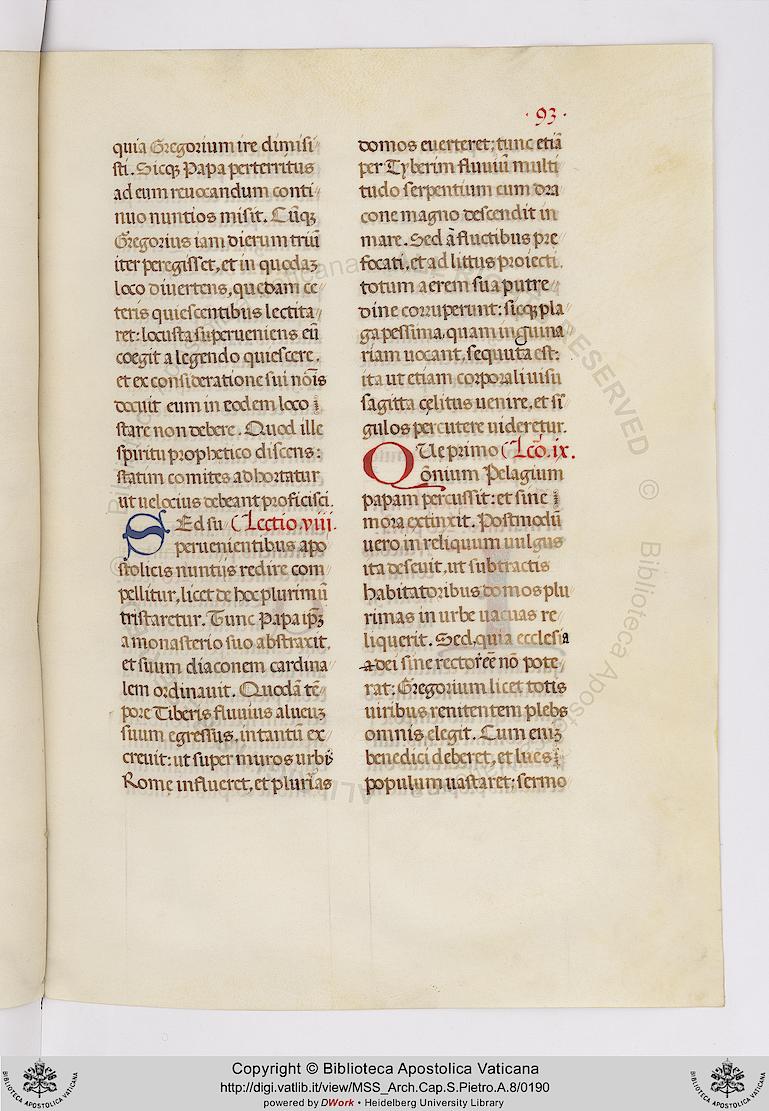 ·93·
quia Gregorium ire dimisi
sti. Sicq; Papa perterritus
ad eum reuocandum conti
nuo nuntios misit. Cũq;
Gregorius iam dierum triũ
iter peregisset, et in quodaꝫ
loco diuertens, quebdam ce
teris quiescentibus lectita
ret: locusta superueniens eũ
coegit a legendo quiescere.
et ex consideratione sui nõis
docuit eum in eodem loco
stare non debere. Quod ille
spiritu prophetico discens:
statim comites adhortatur
ut uelocius debeant proficisci.
SEd su (Lectio.viii.
peruenientibus apo
stolicis nuntijs redire com
pellitur, licet de hoc plurimũ
tristaretur. Tunc Papa ip̃ꝫ
a monasterio suo abstraxit.
et suum diaconem cardina
lem ordinauit. Quodã tẽ
pore Tiberis fluuius alueuꝫ
suum egressus, in tantũ ex
creuit: ut super muros urbis
Romę influeret, et plurĩas
domos euerteret; tunc etiã
per Tyberim fluuiũ multi
tudo serpentium cum dra
cone magno descendit in
mare. Sed ã fluctibus pre
focati, et ad littus proiecti.
totum aerem sua putre
dine corruperunt: sicq; pla
ga pessima, quam inguina
riam uocant, sequuta est:
ita ut etiam corporali uisu
sagitta cęlitus uenire, et sĩ
gulos percutere uideretur.
QUe primo (Lcõ.ix.
õnium Pelagium
papam percussit: et sine
mora extinxit. Postmodũ
uero in reliquum uulgus
ita deseuit, ut subtractis
habitatoribus domos plu
rimas in urbe uacuas re
liquerit. Sed, quia ecclesia
dei sine rectore nõ pote
rat; Gregorium licet totis
uiribus renitentem plebs
omnis elegit. Cum eniꝫ
benedici deberet, et lues
populum uastaret; sermo
Copyright © Biblioteca Apostolica Vaticana
http://digi.vatlib.it/view/MSS_Arch.Cap.S.Pietro.A.8/0190
powered by DWork • Heidelberg University Library
BIBLIOTECA APOSTOLICA VATICANA
BIBLIOTECA APOSTOLICA VATICANA